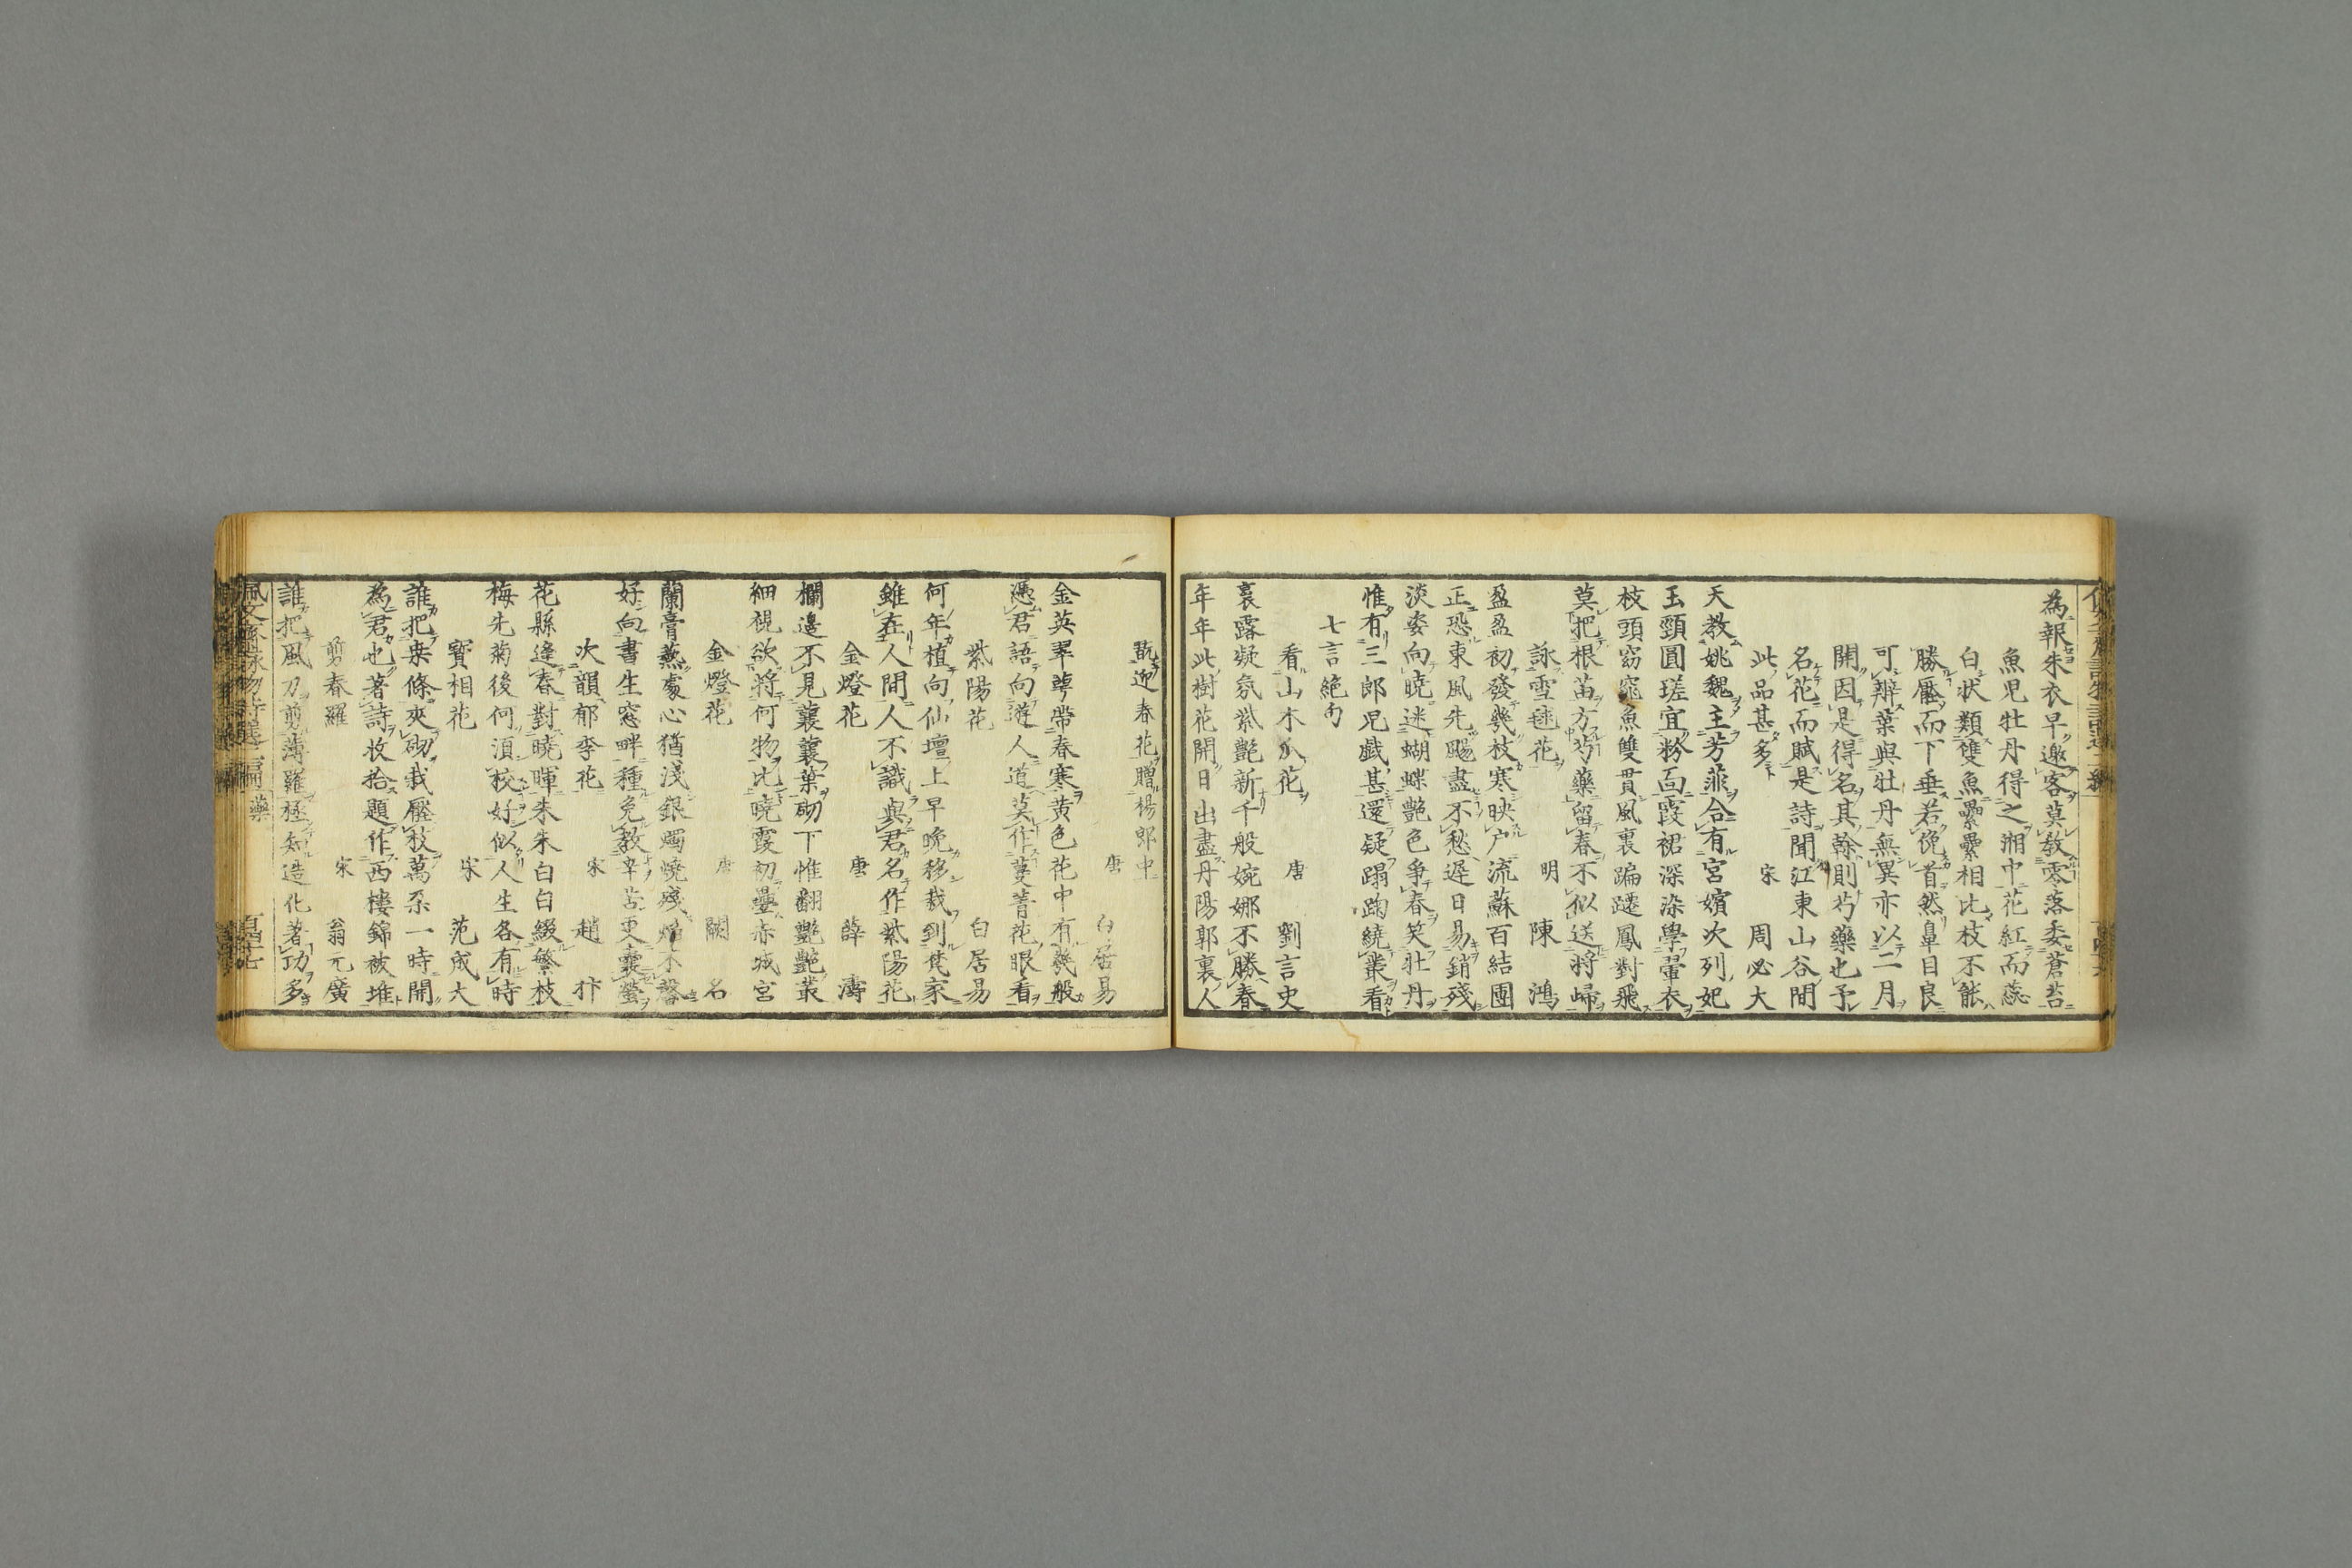 為報朱衣早邀客莫教零落委蒼苔
魚児牡丹得之湘中花紅而蕊
白状類雙魚纍纍相比枝不能
勝壓而下垂若俛首然鼻目良
可辨葉與牡丹無異亦以二月
開因是得名其榦則芍藥也予
名花而賦是詩聞江東山谷間
此品甚多 宋 周必大
天教姚魏主芳菲合有宮嬪次列妃
玉頸圓瑳宜粉面霞裙深染學翬衣
枝頭窈窕魚雙貫風裏蹁躚鳳對飛
莫把根苗方芍藥留春不似送將歸
詠雪毬花 明 陳鴻
盈盈初發幾枝寒映户流蘇百結團
正恐東風先颺盡不愁遲日易銷殘
淡姿向曉迷蝴蝶艶色爭春笑牡丹
惟有三郎児戯甚還疑蹋踘繞叢看
七言絶句
看山木瓜花 唐 劉言史
裛露凝氛紫艶新千般婉娜不勝春
年年此樹花開日出盡丹陽郭裏人
翫迎春花贈楊郎中
唐 白居易
金英翠萼帶春寒黄色花中有幾般
憑君語向遊人道莫作蔓菁花眼看
紫陽花 白居易
何年植向仙壇上早晩移栽到梵家
雖在人間人不識與君名作紫陽花
金燈花 唐 薛濤
欄邊不見蘘蘘葉砌下惟翻艶艶叢
細視欲將何物比曉霞初疊赤城宮
金燈花 唐 闕名
蘭膏爇處心猶淺銀燭燒殘焔不馨
好向書生窓畔種免教辛苦更囊螢
次韻郁李花 宋 趙抃
花縣逢春對曉暉朱朱白白綴繁枝
梅先菊後何湏校好似人生各有時
寳相花 宋 范成大
誰把柔條夾砌栽壓枝萬朶一時開
為君也著詩收拾題作西樓錦被堆
剪春羅 宋 翁元廣
誰把風刀剪薄羅極知造化著功多